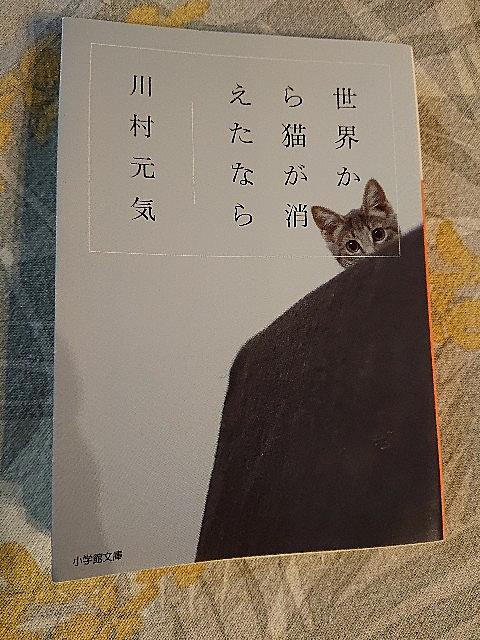 世界か
ら猫が消
えたなら
川村元気
小学館文庫